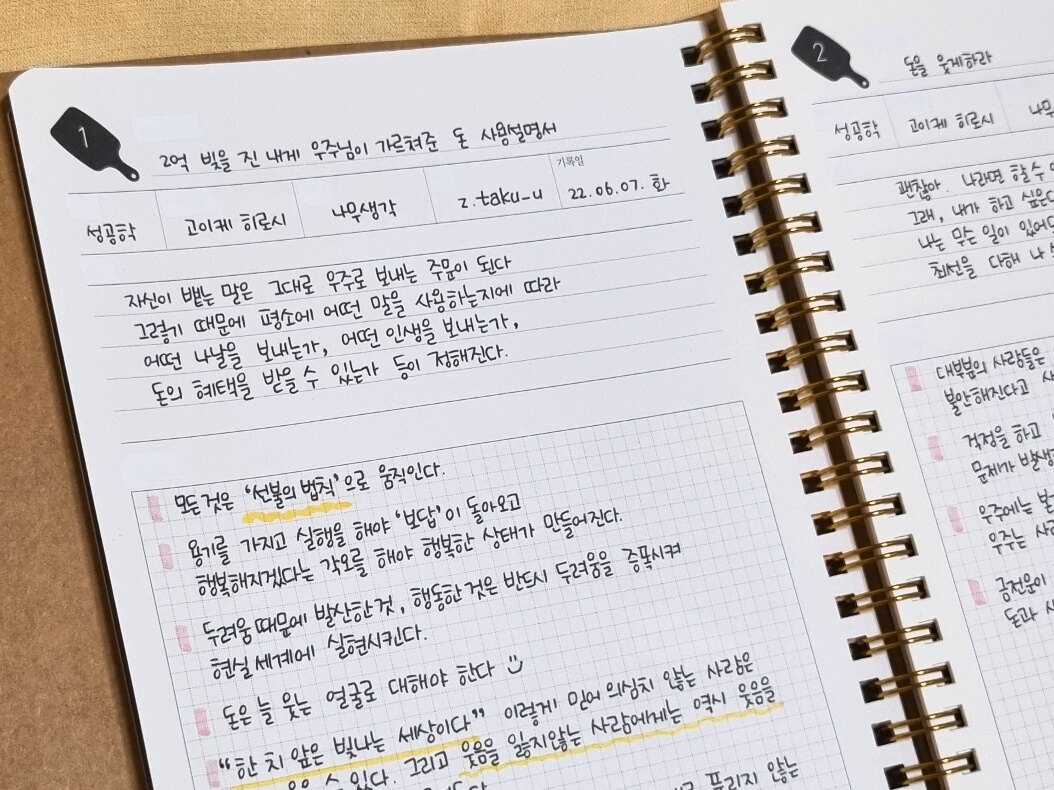 1
2억 빚을 진 내게 우주님이 가르쳐준 돈 사용설명서
기록일
성공학 고이케 히로시 나무생각 z.taku_u 22.06.07. 화
자신이 뱉는 말은 그대로 우주로 보내는 주문이 된다
그렇기 때문에 평소에 어떤 말을 사용하는지에 따라
어떤 나날을 보내는가, 어떤 인생을 보내는가,
돈의 혜택을 받을 수 있는가 등이 정해진다.
모든 것은 '선불의 법칙'으로 움직인다.
용기를 가지고 실행을 해야 '보답'이 돌아오고
행복해지겠다는 각오를 해야 행복한 상태가 만들어진다.
두려움 때문에 발산한 것, 행동한 것은 반드시 두려움을 증폭시켜
현실 세계에 실현시킨다.
돈은 늘 웃는 얼굴로 대해야 한다
"한 치 앞은 빛나는 세상이다" 이렇게 믿어 의심치 않는 사람은
웃을 수 있다. 그리고 웃음을 잃지않는 사람에게는 역시 웃음을
풀리지 않는
2
돈을 웃게하라
성공학 고이케 히로시
괜찮아. 나라면 할 수
그래, 내가 하고 싶은
나는 무슨 일이 있어도
최선을 다해 나
대부분의 사람들은
불안해진다고
걱정을 하고
문제가 발생
우주에는
우주는
금전운이
돈과